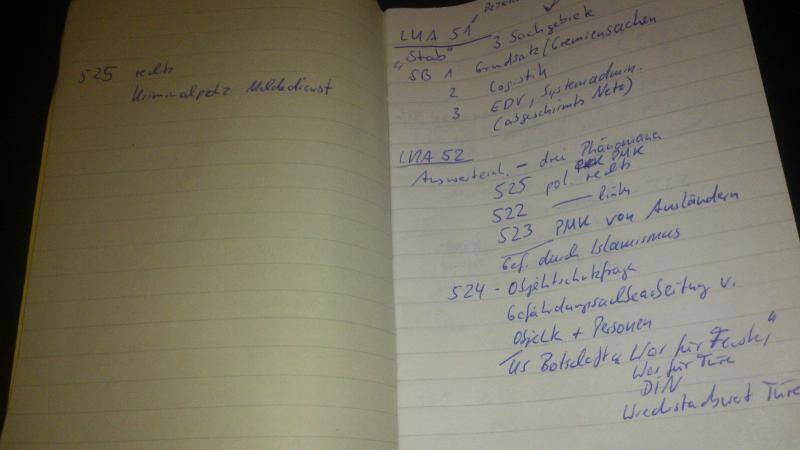 525 rechts
Kriminalpolz. Meldedienst
LKA 51
"Stab" 3 Sachgebiete
SB 1 Grundsatz/Gremiensachen
2 Logistik
3 EDV, Systemadmin.
(abgeschirmts Netz)
LKA 52
Auswerteeinh. – drei Phänomena
525 pol. PMK rechts
522 — links
523 PMK von Ausländern
Gef. durch Islamismus
524 - Objektschutzfrage
Gefährdungssachbearbeitung v.
Objekte + Personen
US Botschaft
für Türe
DIN
Türe